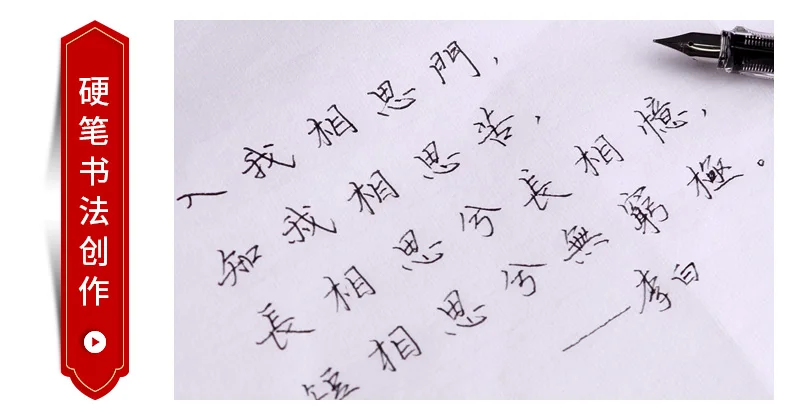 硬笔书法创作
入我相思門，
知我相思苦，
長相思兮長相憶，
短相思兮無窮極。
——李白